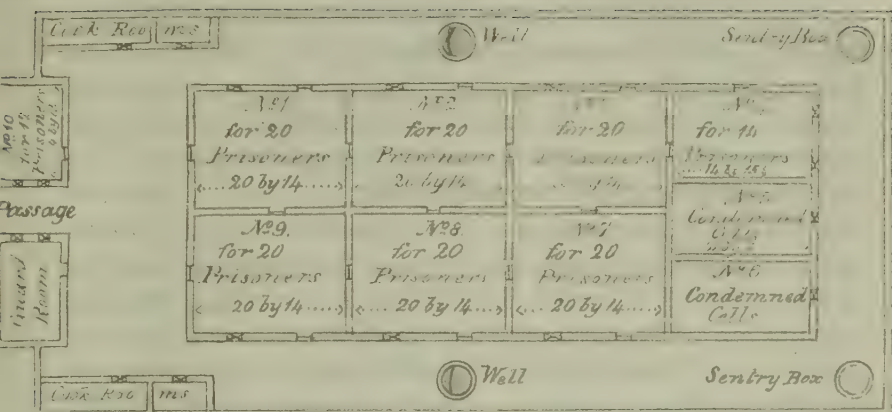 Cook Rooms
Well
Sentry Box
No 10
for 12
Prisoners
Passage
Guard
Room
No 1
for 20
Prisoners
20 by 14
No 2
for 20
Prisoners
20 by 14
for 20
Prisoners
14
No
for 14
Prisoners
No 5
Condemned
Cells
No 9.
for 20
Prisoners
20 by 14
No 8
for 20
Prisoners
20 by 14
No 7
for 20
Prisoners
20 by 14
No 6
Condemned
Cells
Cook Rooms
Well
Sentry Box